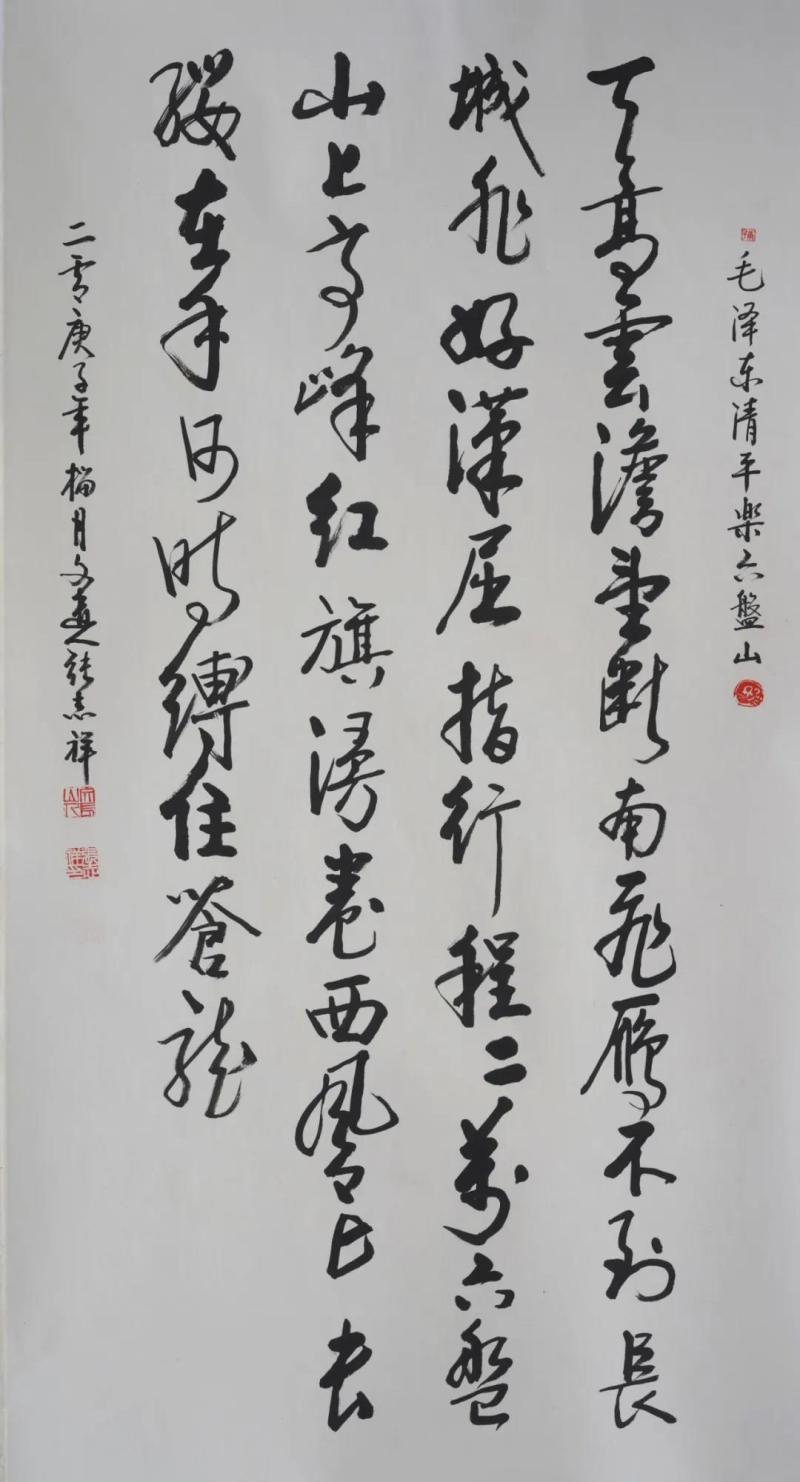 毛泽东清平樂六盤山
天高雲澹望断南飛雁不到長
城非好漢屈指行程二萬六盤
山上高峰红旗漫卷西風今日長
缨在手何时縛住蒼龍
二零庚子年榴月文張志祥